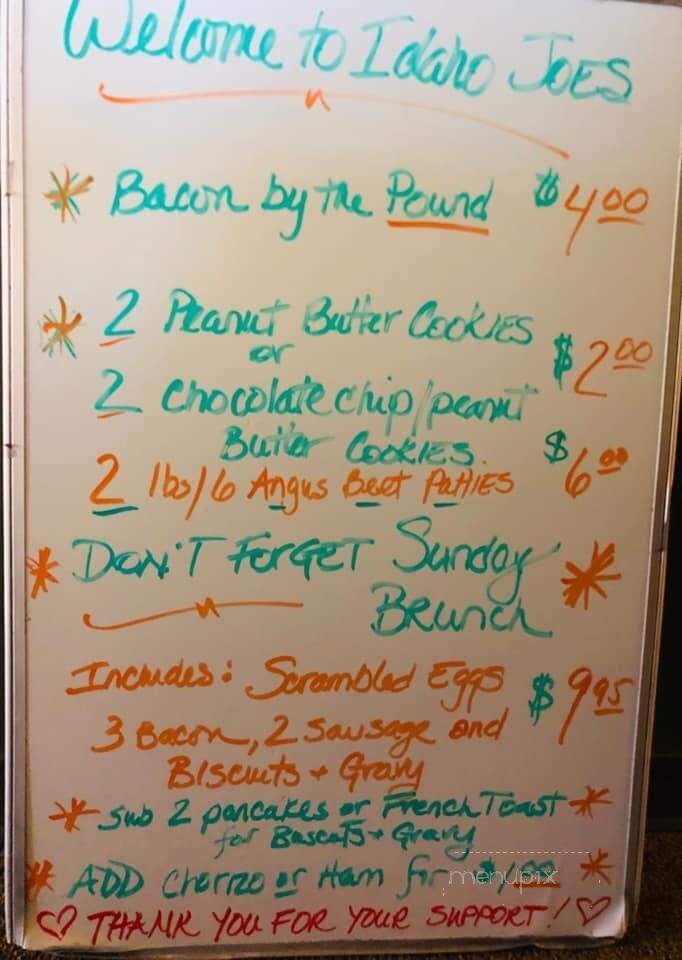 Welcome to Idaho JOES
* Bacon by the Pound $4.00
* 2 Peanut Butter Cookies
or $2.00
2 chocolate chip/peanut
Butter Cookies. $6.00
2 lbs/6 Angus Beet Patties
* DON'T FORGET Sunday *
Brunch
Includes: Scrambled Eggs $9.95
3 Bacon, 2 sausage and
Biscuits + Gravy
* Sub 2 pancakes or French Toast *
for Buscuts + Gravy
* ADD Chorizo or Ham for *
menupix
♡ THANK YOU FOR YOUR SUPPORT! ♡